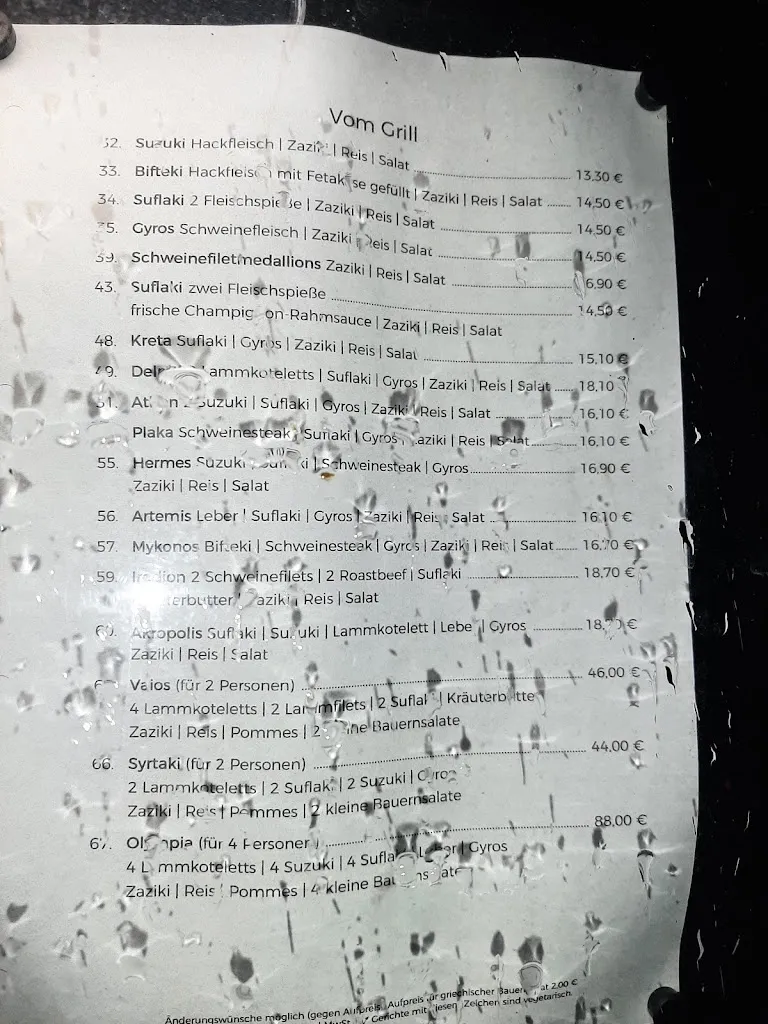 Vom Grill
32. Suzuki Hackfleisch | Zaziki | Reis | Salat 13,30 €
33. Bifteki Hackfleisch mit Fetakäse gefüllt | Zaziki | Reis | Salat 14,50 €
34. Suflaki 2 Fleischspieße | Zaziki | Reis | Salat 14,50 €
35. Gyros Schweinefleisch | Zaziki | Reis | Salat 14,50 €
39. Schweinefiletmedallions Zaziki | Reis | Salat 16,90 €
43. Suflaki zwei Fleischspieße 14,50 €
frische Champignon-Rahmsauce | Zaziki | Reis | Salat
48. Kreta Suflaki | Gyros | Zaziki | Reis | Salat 15,10 €
49. Lammkoteletts | Suflaki | Gyros | Zaziki | Reis | Salat 18,10
51. Suzuki | Suflaki | Gyros | Zaziki | Reis | Salat 16,10 €
Plaka Schweinesteak | Suflaki | Gyros | Zaziki | Reis | Salat 16,10 €
55. Hermes Suzuki | Suflaki | Schweinesteak | Gyros 16,90 €
Zaziki | Reis | Salat
56. Artemis Leber | Suflaki | Gyros | Zaziki | Reis | Salat 16,10 €
57. Mykonos Bifteki | Schweinesteak | Gyros | Zaziki | Reis | Salat 16,70 €
59. 2 Schweinefilets | 2 Roastbeef | Suflaki 18,70 €
Kräuterbutter | Zaziki | Reis | Salat
Akropolis Suflaki | Suzuki | Lammkotelett | Leber | Gyros
Zaziki | Reis | Salat
Vaios (für 2 Personen) 46,00 €
4 Lammkoteletts | 2 Lammfilets | 2 Suflaki | Kräuterbutter
Zaziki | Reis | Pommes | 2 kleine Bauernsalate
66. Syrtaki (für 2 Personen) 44,00 €
2 Lammkoteletts | 2 Suflaki | 2 Suzuki | Gyros
Zaziki | Reis | Pommes | 2 kleine Bauernsalate
67. Olympia (für 4 Personen) 88,00 €
4 Lammkoteletts | 4 Suzuki | 4 Suflaki | Leber | Gyros
Zaziki | Reis | Pommes | 4 kleine Bauernsalate
Änderungswünsche möglich (gegen Aufpreis). Aufpreis für griechischer Bauernsalat 2,00 €
MwSt. Gerichte mit diesen Zeichen sind vegetarisch.